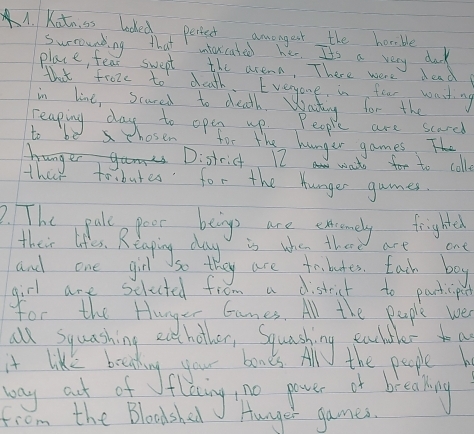 1. Katniss looked perfect amongest the horrible
surrounding that intoxicated her. Its a very dark
place, fear swept the arena, There were dead
that froze to death. Everyone in fear waiting
in line, scared to death. Waiting for the
reaping day to open up. People are scared
to be chosen for the hunger games. The
hunger games District 12 waits for to colle
their tributes for the Hunger games.
2. The pale poor beings are extremely frighted
their lifes. Reaping day is when there are one
and one girl so they are tributes. Each boy
girl are selected from a district to participat
for the Hunger Games. All the people wer
all squashing eachother, Squashing eachother
it like breaking your bones. All the people h
way out of fleeing, no power of breaking
from the Bloodshed Hunger games.